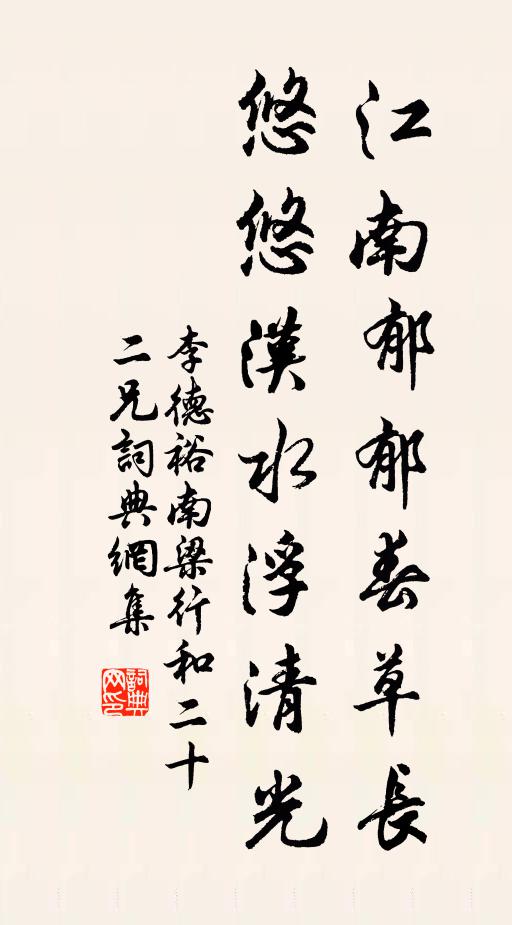 江南郁郁春草長
悠悠漢水浮清光
李德裕南梁行和二十
二兄詞典網集
詞典
网印